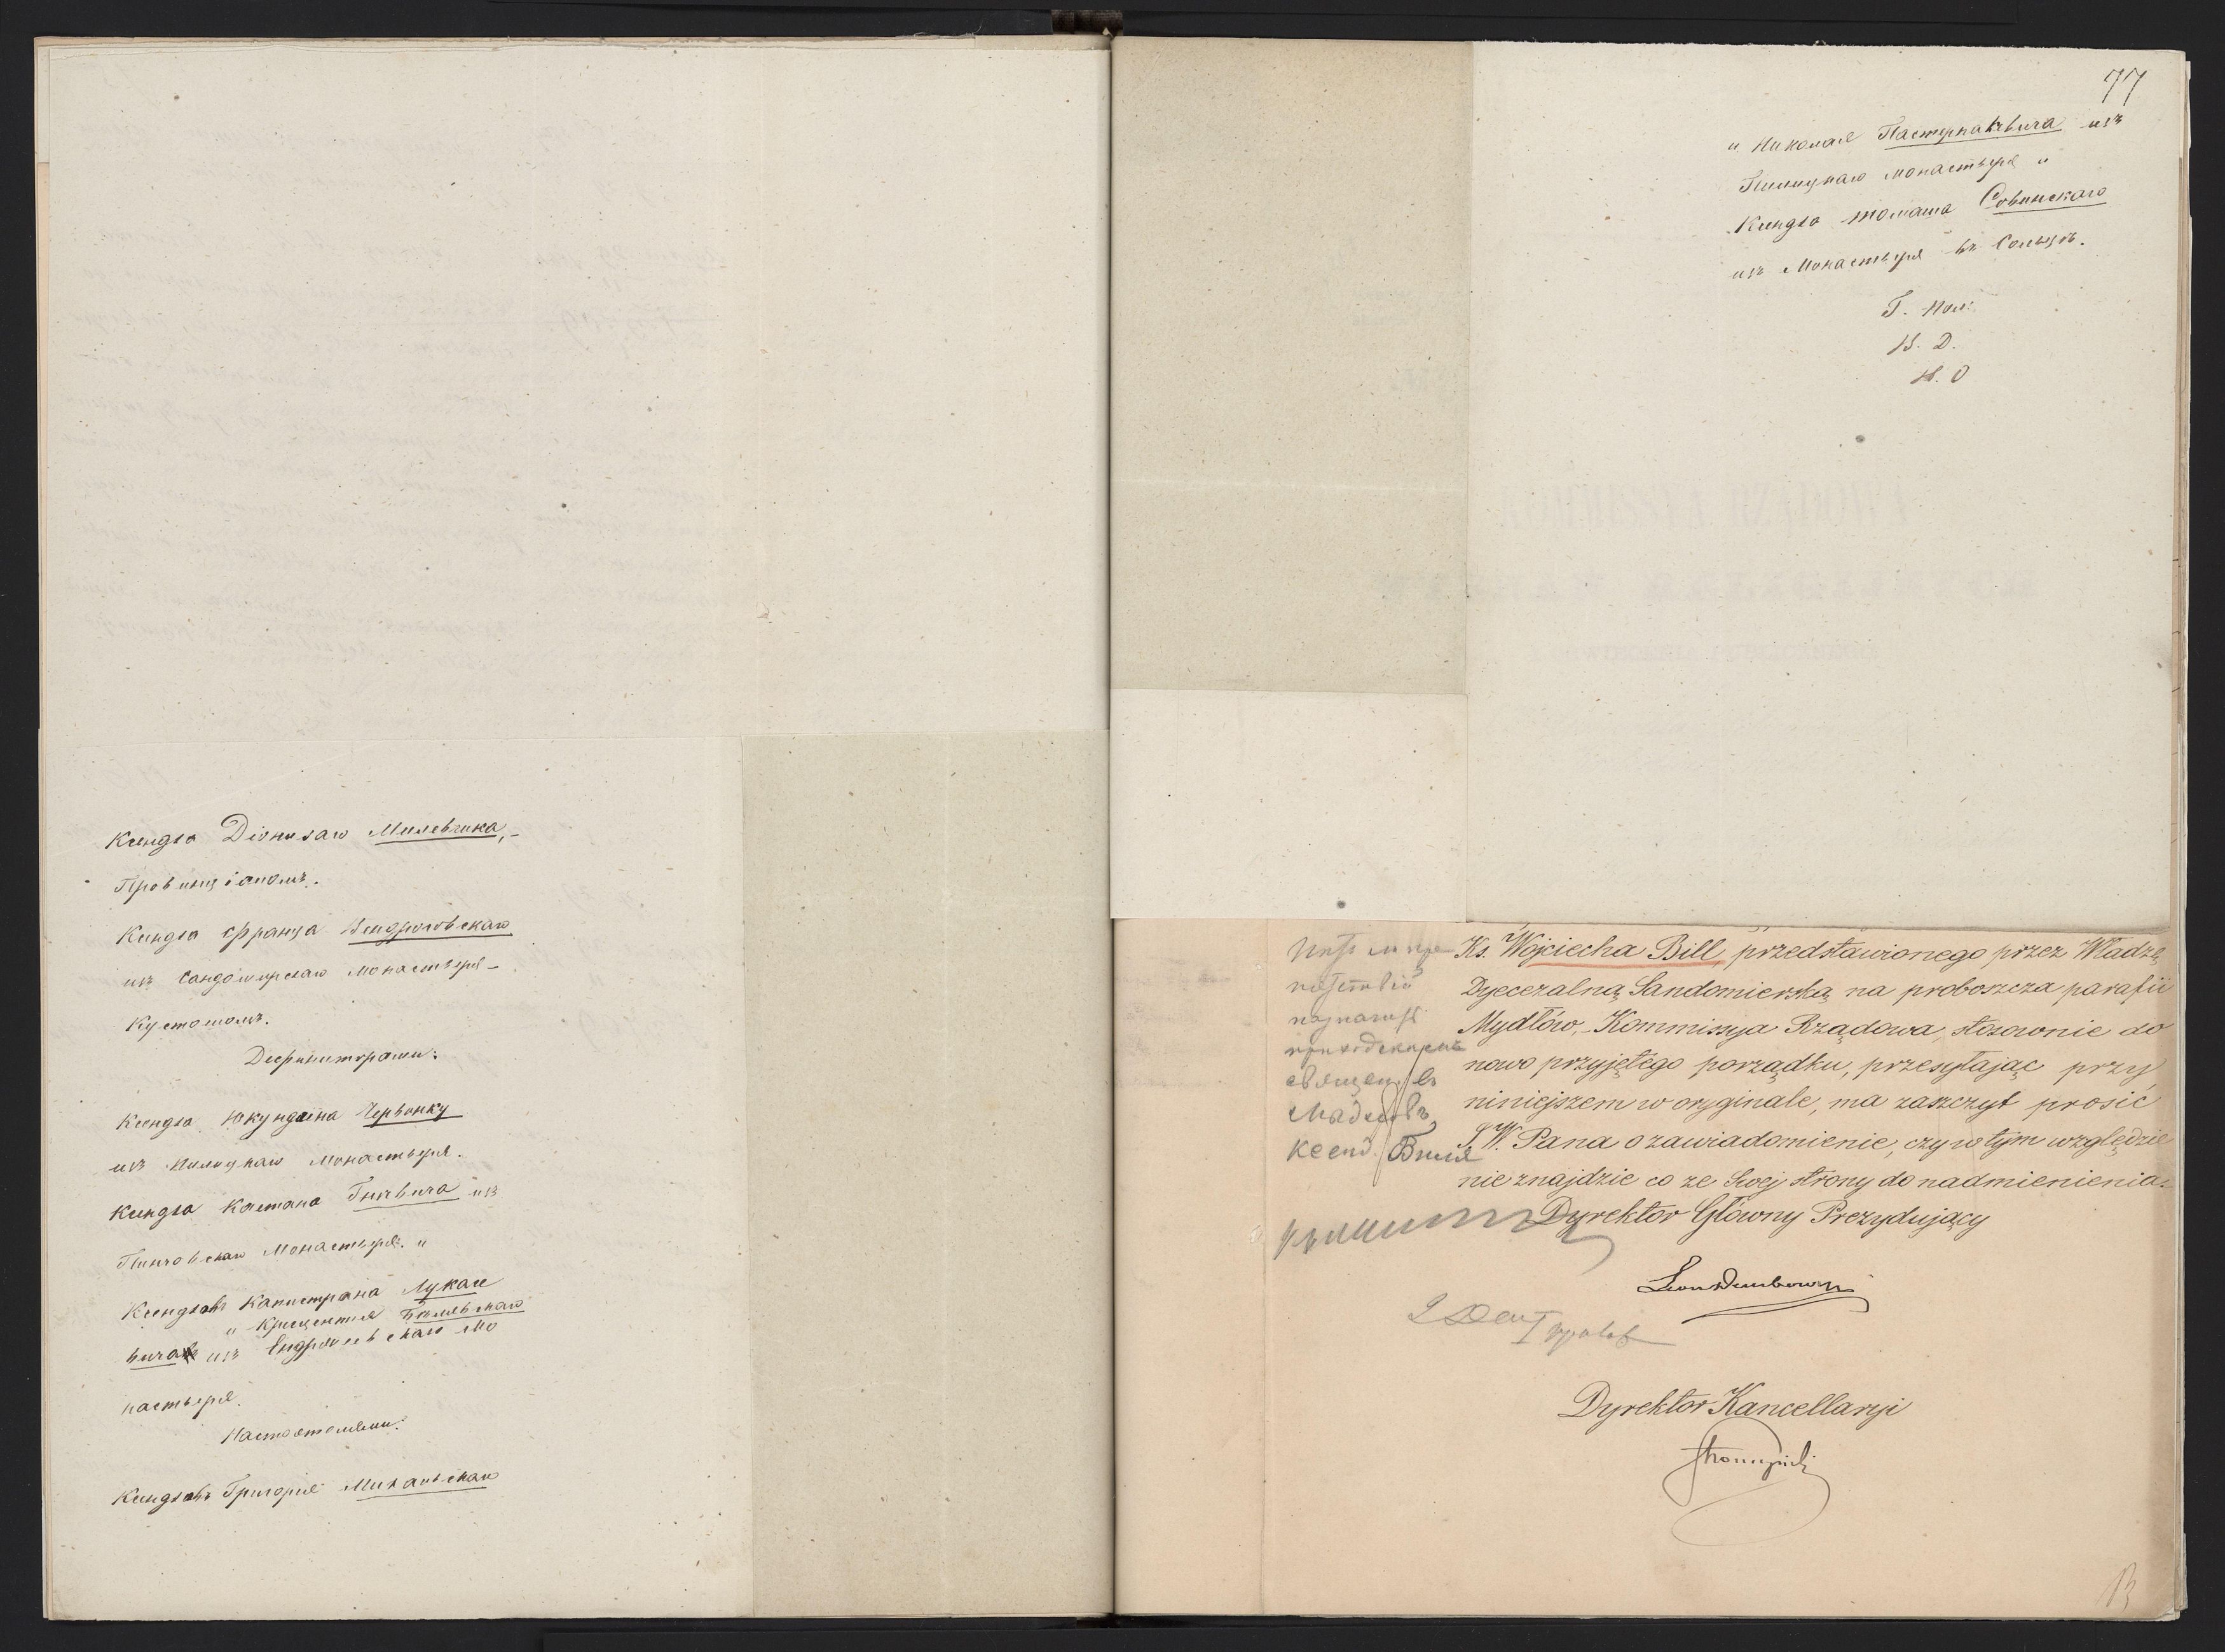 Ксендза Діонизаго Милевчика,
Провинціаломъ.
Ксендза Франца Ендроловскаго
изъ Сандомирскаго Монастыря
Кустошомъ.
Дефиниторами:
Ксендза Юкундина Червонку
изъ Пилицкаго Монастыря.
Ксендза Каетана Гинчвича изъ
Пинчовскаго Монастыря. и
Ксендзовъ Капистрана Лукаше
и Крисцентия
вича изъ Андреевскаго Мо
настыря.
Настоятелями:
Ксендзовъ Григорія Михальскаго
77
и Николая Пастернакевича изъ
Пилицкаго Монастыря и
Ксендза Томаша Совинскаго
изъ Монастыря въ Сольцѣ.
Г. Нач.
В. Д.
Н. О
Ks. Wojciecha Bill, przedstawionego przez Władzę
Dyecezalną Sandomierską na proboszcza parafii
Mydłów, Kommissya Rządowa, stosownie do
nowo przyjętego porządku, przesyłając przy
niniejszem w oryginale, ma zaszczyt prosić
J. W. Pana o zawiadomienie, czy w tym względzie
nie znajdzie co ze Swej strony do nadmienienia.
Нѣтъ ли пре
пятствій
назначить
приходскимъ
священ. въ
Мыдловъ
Ксенд. Билля
Dyrektor Główny Prezydujący
Leon Dembowski
Dyrektor Kancellaryi